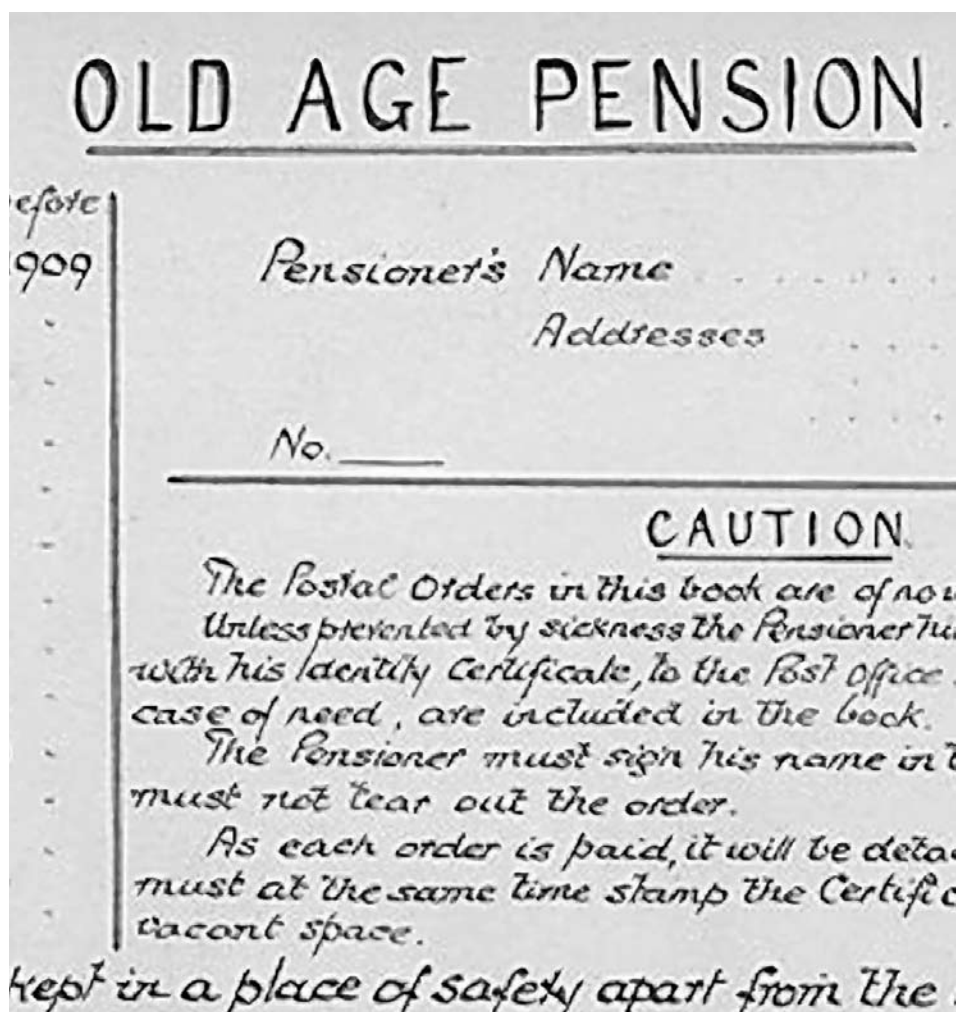 OLD AGE PENSION.
efore
1909
Pensioner's Name
Addresses
No.
CAUTION.
The Postal Orders in this book are of no
Unless prevented by sickness the Pensioner
with his Identity Certificate, to the Post Office
case of need, are included in the book.
The Pensioner must sign his name in
must not tear out the order.
As each order is paid, it will be deta
must at the same time stamp the Certific
vacant space.
kept in a place of safety apart from the